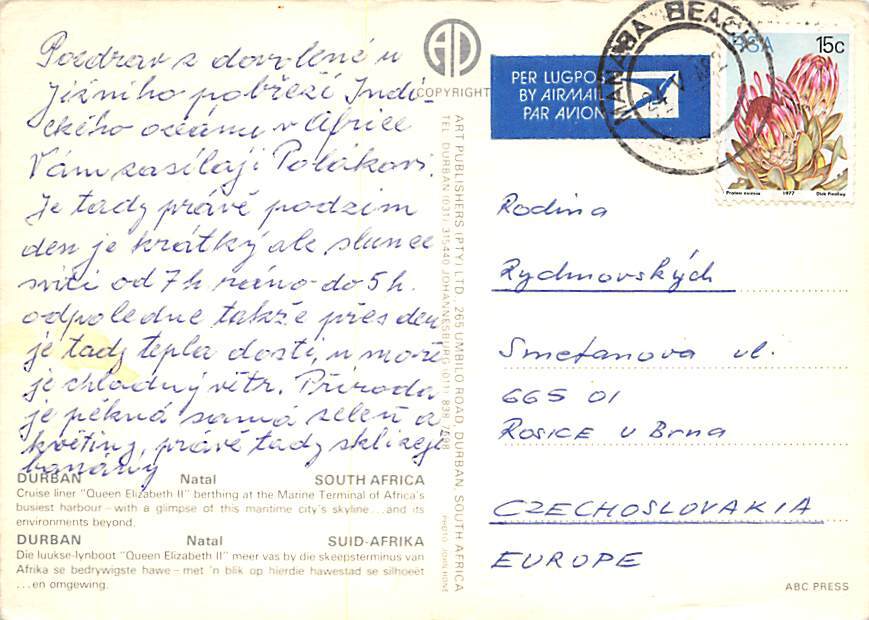 Pozdrav z dovolené u
Jižního pobřeží Indic-
kého oceánu v Africe
Vám zasílají Polákovi.
Je tady právě podzim
den je krátký ale slunce
svítí od 7h ráno do 5h.
odpoledne takže přes den
je tady tepla dosti, u moře
je chladný větr. Příroda
je pěkná samá zeleň a
květiny, právě tady sklízejí
banány
DURBAN Natal SOUTH AFRICA
Cruise liner "Queen Elizabeth II" berthing at the Marine Terminal of Africa's
busiest harbour – with a glimpse of this maritime city's skyline ... and its
environments beyond.
DURBAN Natal SUID-AFRIKA
Die luukse-lynboot "Queen Elizabeth II" meer vas by die skeepsterminus van
Afrika se bedrywigste hawe – met 'n blik op hierdie hawestad se silhoeët
... en omgewing.
AD
COPYRIGHT
ART PUBLISHERS (PTY) LTD., 265 UMBILO ROAD, DURBAN, SOUTH AFRICA
TEL. DURBAN (031) 315440 JOHANNESBURG (011) 838
PHOTO: JOHN HONE
PER LUGPOS
BY AIRMAIL
PAR AVION
MANABA BEACH
RSA 15c
Protea eximia 1977 Dick Findlay
Rodina
Rydmovských
Smetanova ul.
665 01
Rosice u Brna
CZECHOSLOVAKIA
EUROPE
ABC PRESS